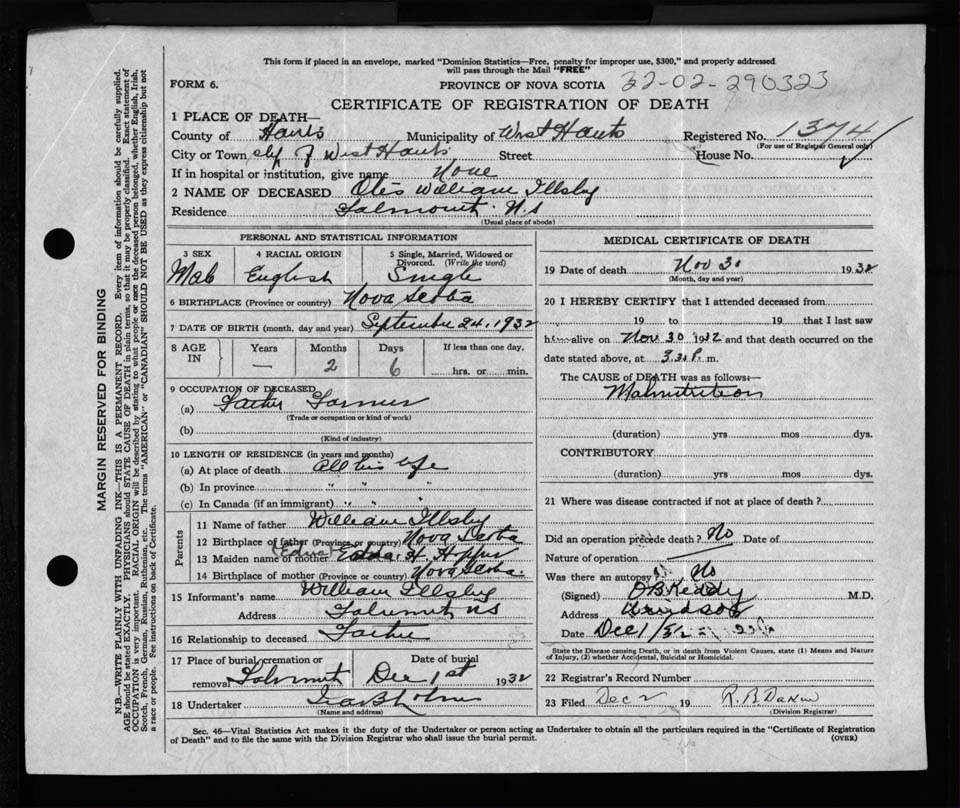 This form if placed in an envelope, marked "Dominion Statistics—Free, penalty for improper use, $300," and properly addressed
will pass through the Mail "FREE"
FORM 6.
PROVINCE OF NOVA SCOTIA
32-02-290323
CERTIFICATE OF REGISTRATION OF DEATH
1 PLACE OF DEATH—
County of Hants Municipality of West Hants Registered No. 1374
(For use of Registrar General only)
City or Town of West Hants Street House No.
If in hospital or institution, give name None
2 NAME OF DECEASED Otis William Illsby
Residence Falmouth N.S
(Usual place of abode)
PERSONAL AND STATISTICAL INFORMATION
3 SEX 4 RACIAL ORIGIN 5 Single, Married, Widowed or Divorced. (Write the word)
Male English Single
6 BIRTHPLACE (Province or country) Nova Scotia
7 DATE OF BIRTH (month, day and year) September 24, 1932
8 AGE IN Years Months Days If less than one day,
— 2 6 hrs. or min.
9 OCCUPATION OF DECEASED
(a) Father Farmer
(Trade or occupation or kind of work)
(b)
(Kind of industry)
10 LENGTH OF RESIDENCE (in years and months)
(a) At place of death All his life
(b) In province " " "
(c) In Canada (if an immigrant) " " "
Parents
11 Name of father William Illsby
12 Birthplace of father (Province or country) Nova Scotia
13 Maiden name of mother (Edna) H. Hopper
14 Birthplace of mother (Province or country) Nova Scotia.
15 Informant's name William Illsby
Address Falmouth NS
16 Relationship to deceased Father
17 Place of burial, cremation or removal Falmouth Date of burial Dec 1st 1932
18 Undertaker
(Name and address)
MEDICAL CERTIFICATE OF DEATH
19 Date of death Nov 30 1932
(Month, day and year)
20 I HEREBY CERTIFY that I attended deceased from
19 to 19 that I last saw
h alive on Nov 30 1932 and that death occurred on the
date stated above, at m.
The CAUSE of DEATH was as follows:—
Malnutrition
(duration) yrs mos dys.
CONTRIBUTORY
(duration) yrs mos dys.
21 Where was disease contracted if not at place of death?
Did an operation precede death? No Date of
Nature of operation
Was there an autopsy? No
(Signed) Keddy M.D.
Address Windsor
Date Dec 1/32
State the Disease causing Death, or in death from Violent Causes, state (1) Means and Nature
of Injury, (2) whether Accidental, Suicidal or Homicidal.
22 Registrar's Record Number
23 Filed Dec 2 19 R.B. Dakin
(Division Registrar)
Sec. 46—Vital Statistics Act makes it the duty of the Undertaker or person acting as Undertaker to obtain all the particulars required in the "Certificate of Registration
of Death" and to file the same with the Division Registrar who shall issue the burial permit. (OVER)
MARGIN RESERVED FOR BINDING
N.B.—WRITE PLAINLY WITH UNFADING INK—THIS IS A PERMANENT RECORD. Every item of information should be carefully supplied.
AGE should be stated EXACTLY. PHYSICIANS should STATE CAUSE OF DEATH in plain terms, so that it may be properly classified. Exact statement of
OCCUPATION is very important. RACIAL ORIGIN will be described by stating to what people or race the deceased person belonged, whether English, Irish,
Scotch, French, German, Russian, Ruthenian, etc. The terms "AMERICAN" or "CANADIAN" SHOULD NOT BE USED as they express citizenship but not
a race or people. See instructions on back of Certificate.